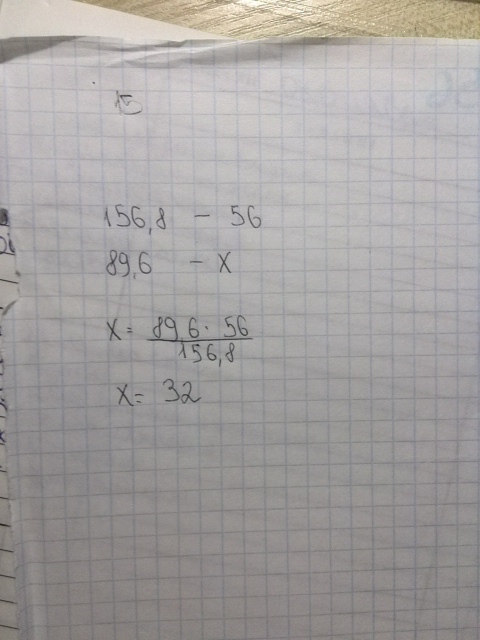 15
156,8 - 56
89,6 - x
x = 89,6 · 56
156,8
x = 32